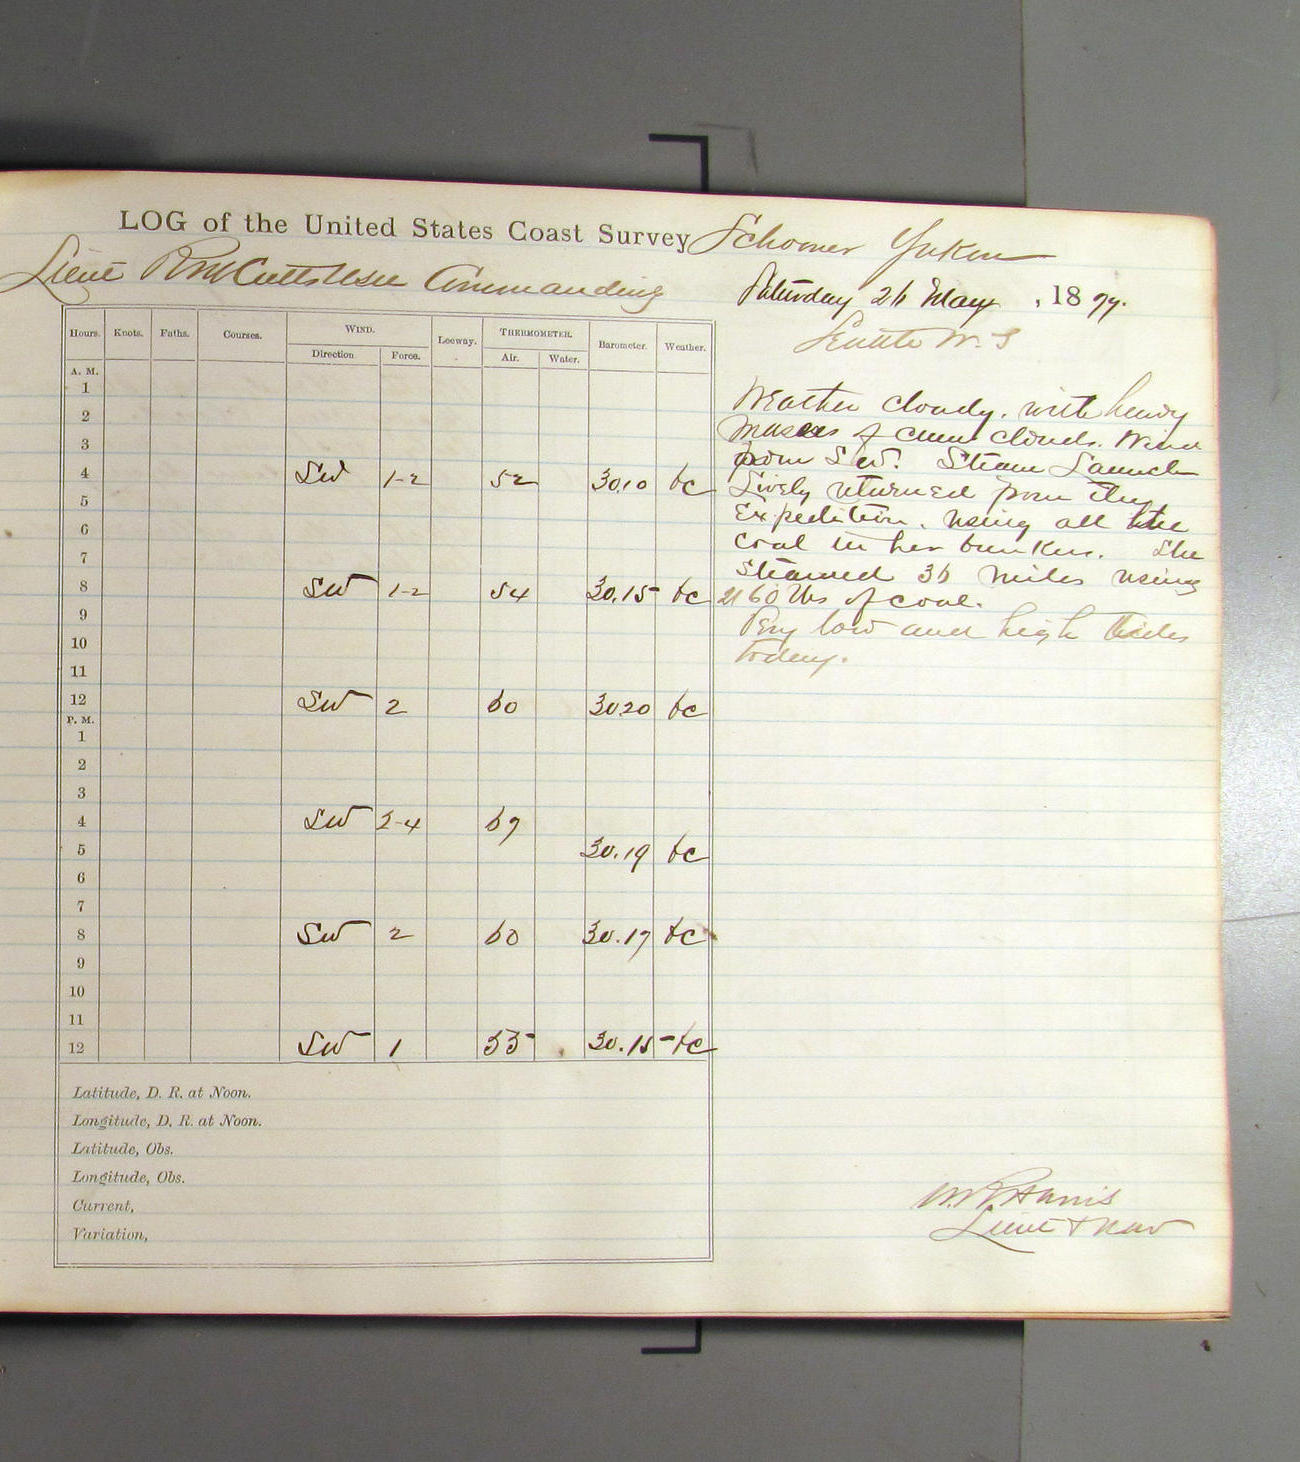 LOG of the United States Coast Survey Schooner Yukon
Lieut R. M. Cutts USN Commanding
Saturday 26 May, 1877.
Seattle W. T
Hours. Knots. Faths. Courses. WIND. Leeway. THERMOMETER. Barometer. Weather.
Direction Force. Air. Water.
A. M.
1
2
3
4 SW 1-2 52 30.10 bc
5
6
7
8 SW 1-2 54 30.15 bc
9
10
11
12 SW 2 60 30.20 bc
P. M.
1
2
3
4 SW 3-4 67
5 30.19 bc
6
7
8 SW 2 60 30.17 bc
9
10
11
12 SW 1 55 30.15 bc
Latitude, D. R. at Noon.
Longitude, D. R. at Noon.
Latitude, Obs.
Longitude, Obs.
Current,
Variation,
Weather cloudy, with heavy
masses of cum clouds. Wind
from SW. Steam Launch
Lively returned from
Expedition, using all the
coal in her bunkers. She
steamed 36 miles using
2160 lbs of coal.
Very low and high tides
today.
Harris
Lieut & Nav